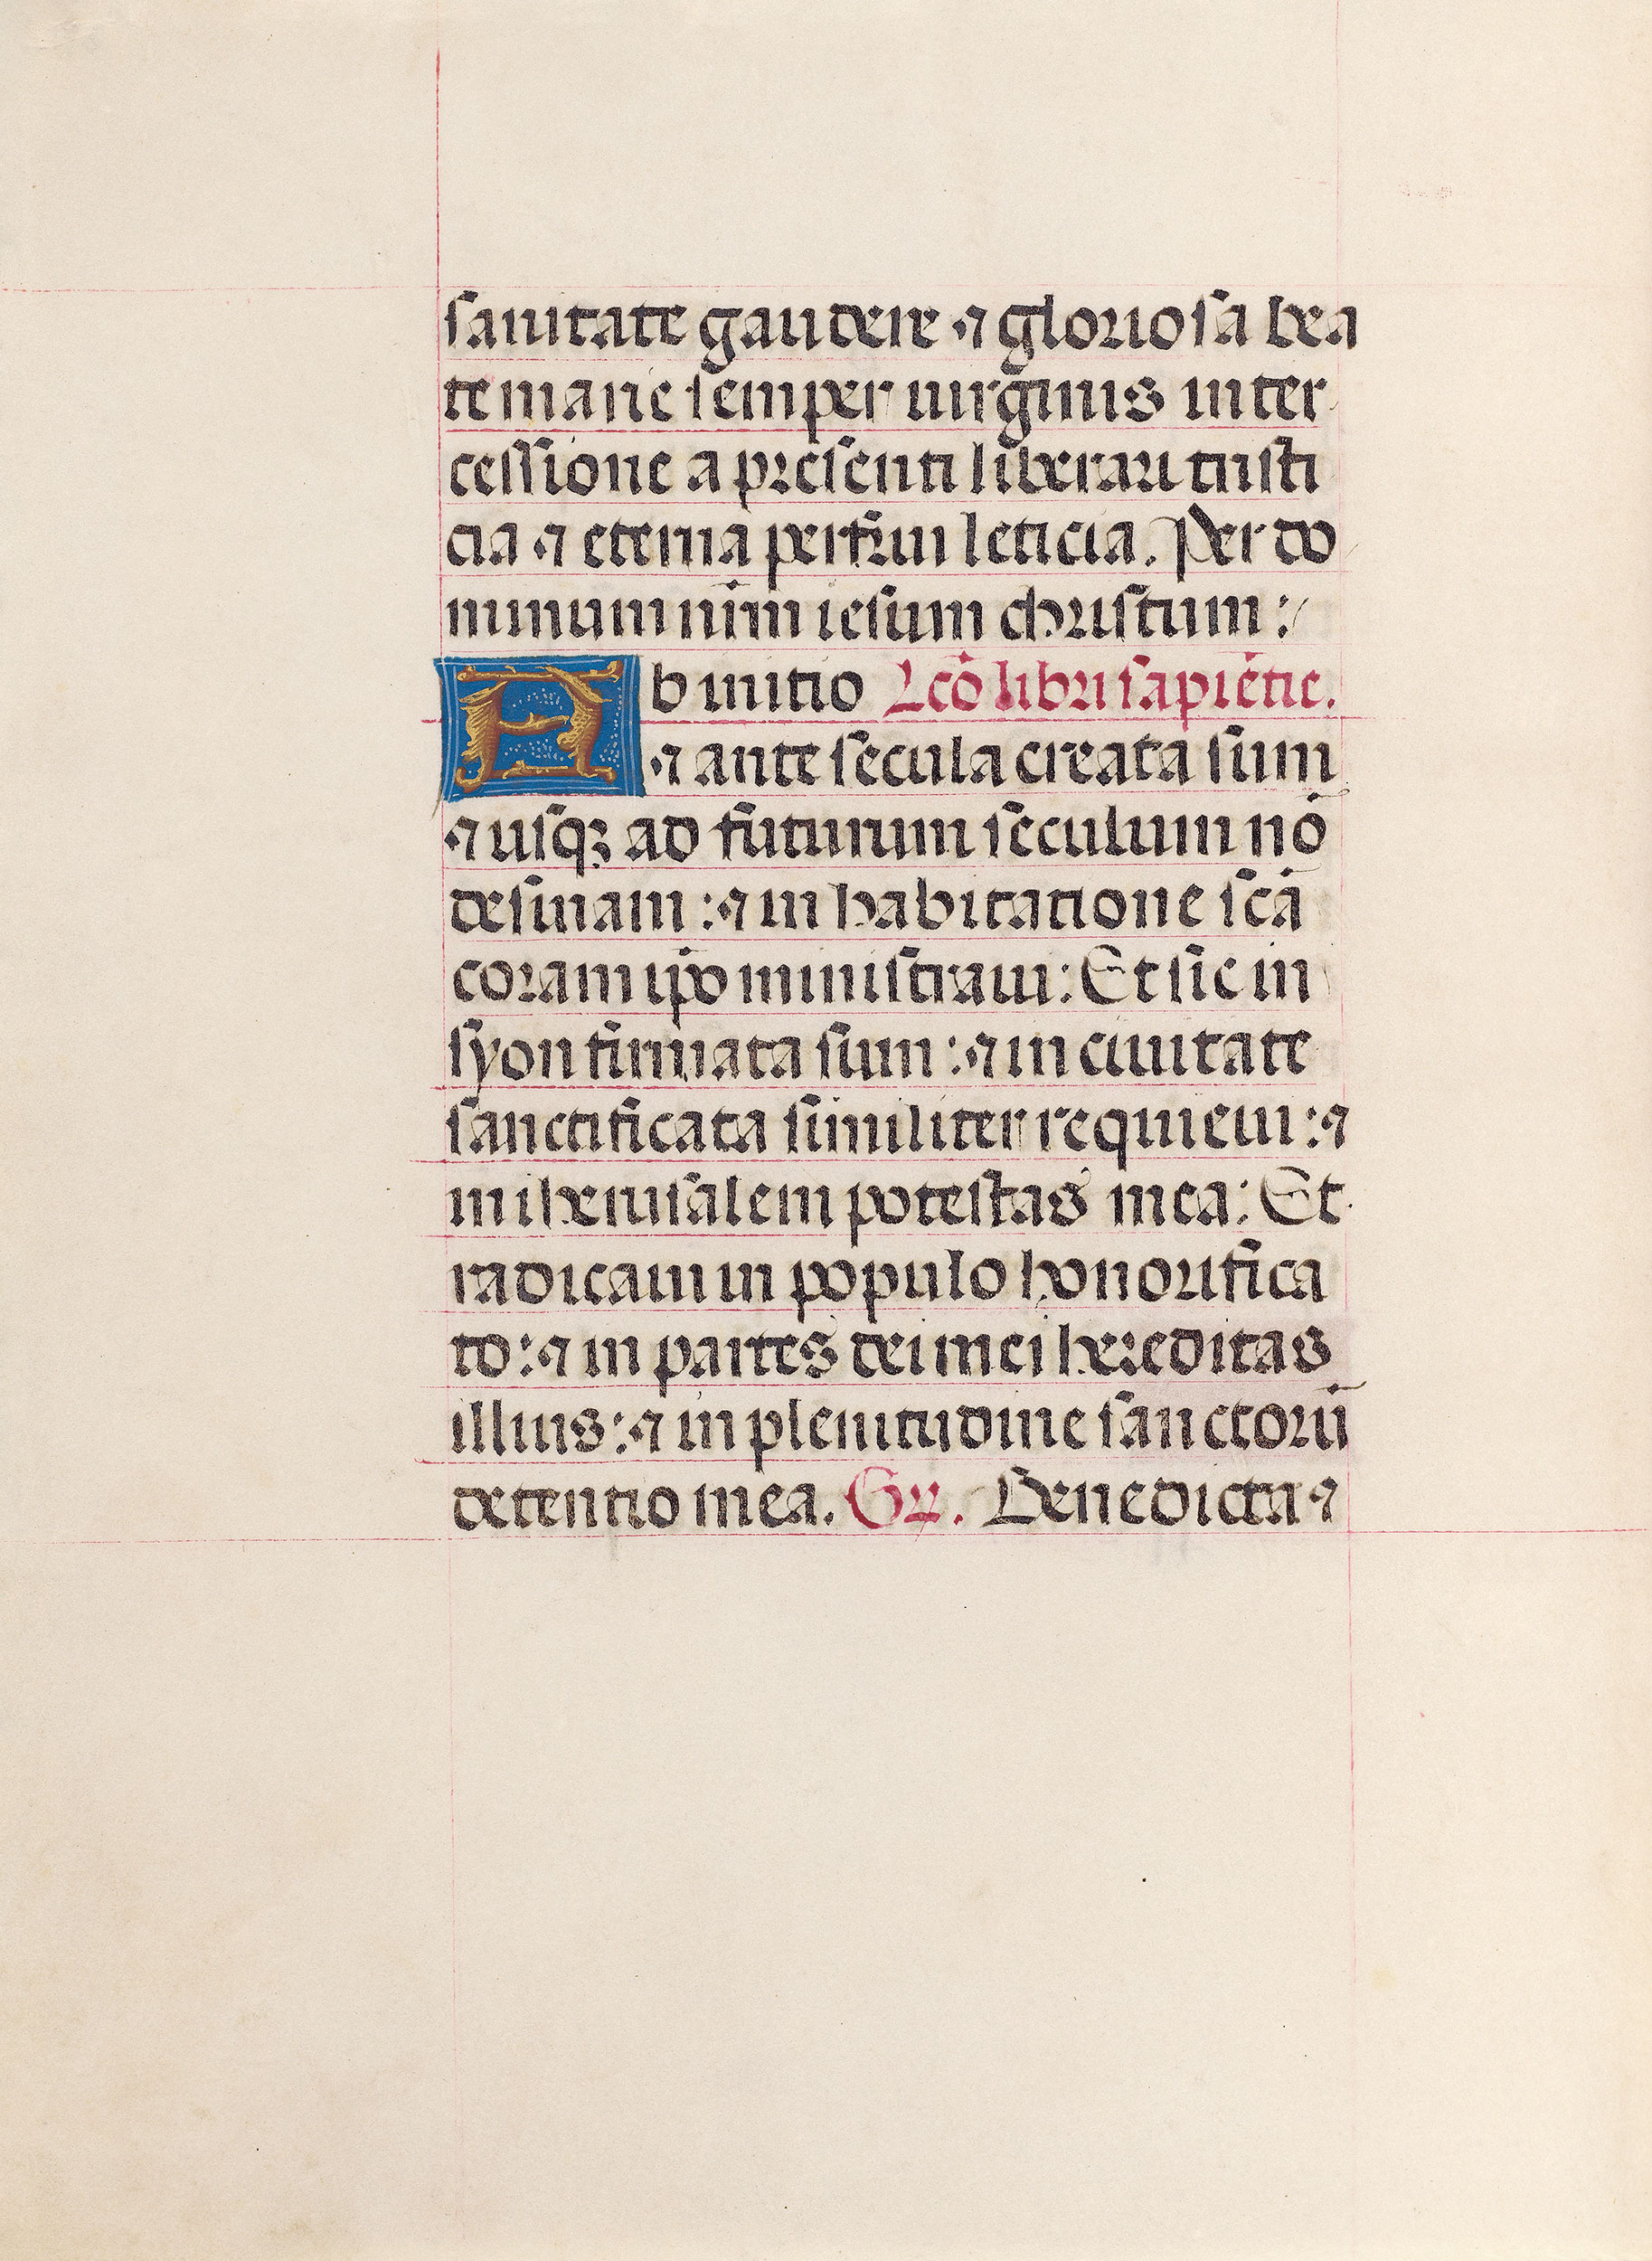 sanitate gaudere ⁊ gloriosa bea
te marie semper uirginis inter
cessione a presenti liberari tristi
cia ⁊ eterna perfrui leticia. Per do
minum nr̄m iesum christum:
Ab initio Lcō libri sapiētie.
⁊ ante secula creata sum
⁊ usqꝫ ad futurum seculum nō
desinam: ⁊ in habitatione scā
coram ip̄o ministraui: Et sic in
syon firmata sum: ⁊ in ciuitate
sanctificata similiter requieui: ⁊
in iherusalem potestas mea: Et
radicaui in populo honorifica
to: ⁊ in partes dei mei hereditas
illius: ⁊ in plenitudine sanctorū
detentio mea. Gr̄. Benedicta ⁊